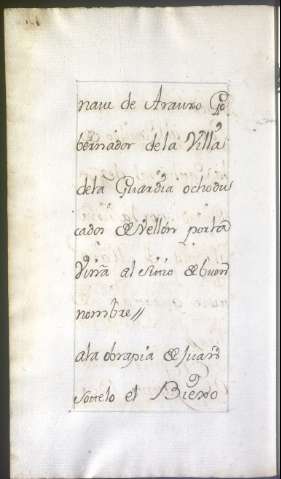 naue de Arauxo Go
bernador de la Villa
dela Guardia ocho du
cados de Vellon por la
Viña al Sitio de buen
nombre//
ala obrapia de Juan
Sottelo el Biexo